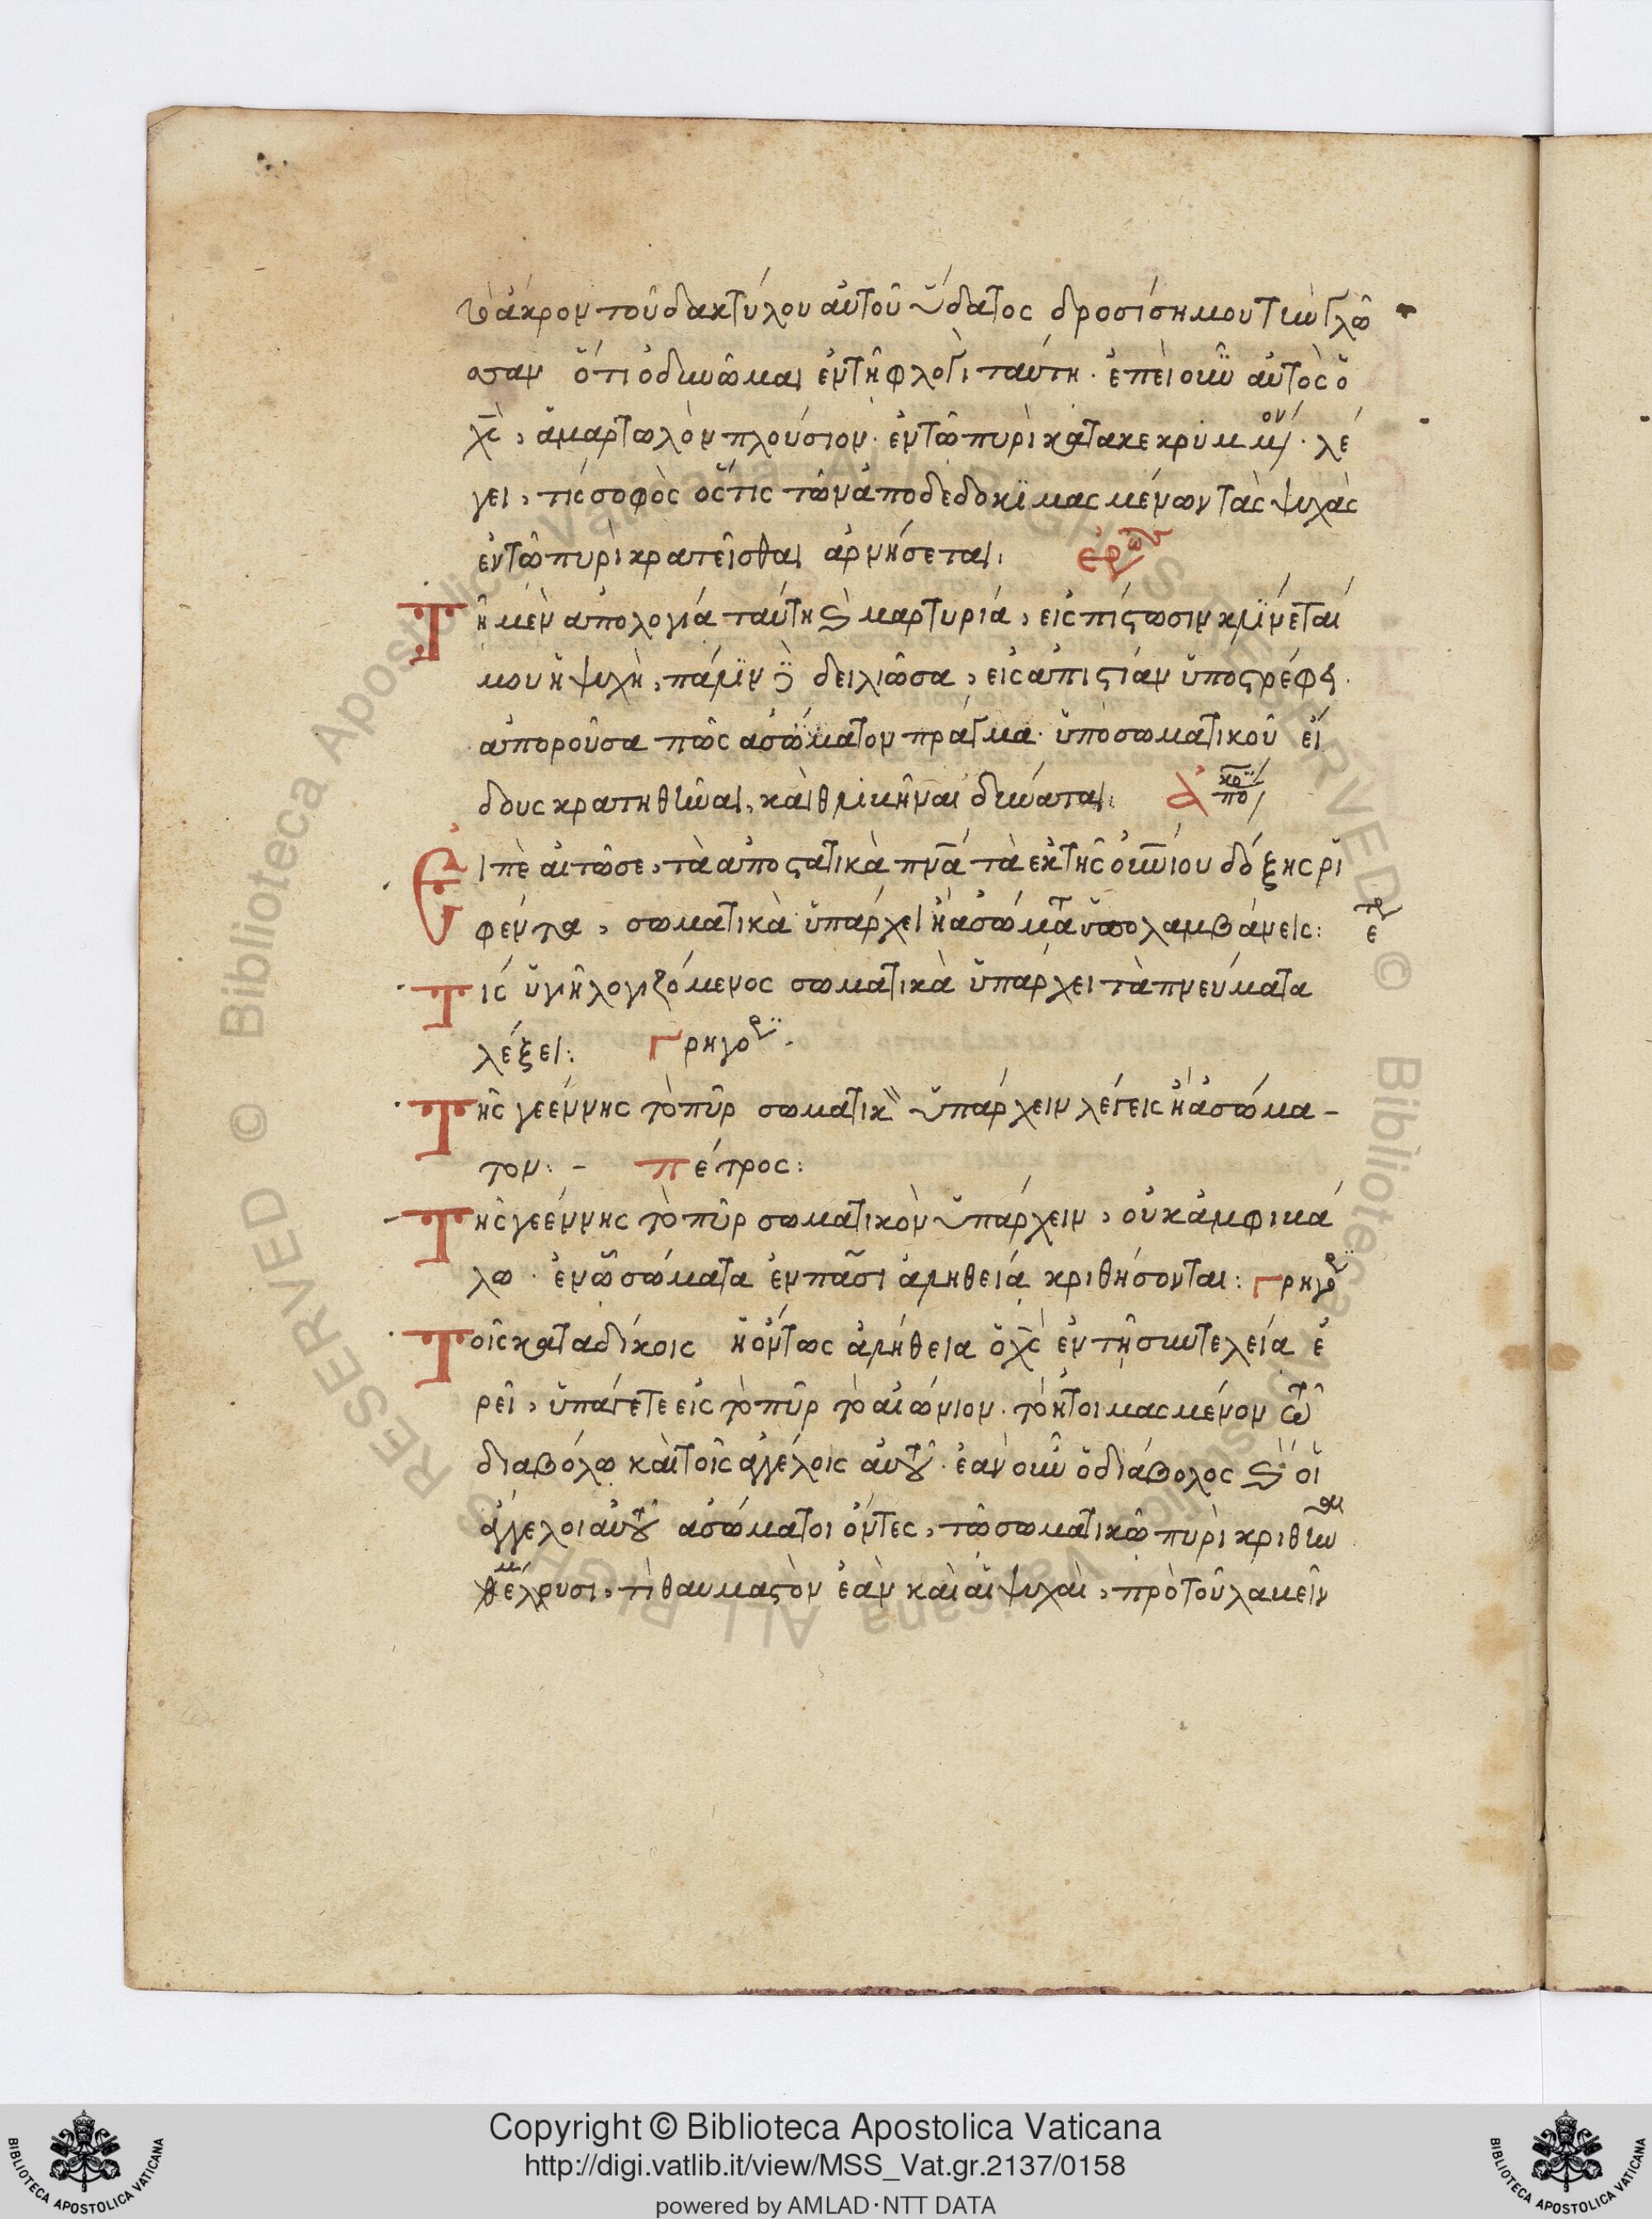 τὸ ἄκρον τοῦ δακτύλου αὐτοῦ ὕδατος δροσίση μου τὴν γλῶ
σσαν ὅτι ὀδυνῶμαι ἐν τῆ φλογὶ ταύτη· ἐπεὶ οὖν αὐτὸς ὁ
χ̅ς̅, ἁμαρτωλὸν πλούσιον· ἐν τῶ πυρὶ κατακεκριμμον· λέ
γει, τίς σοφὸς ὅστις τῶν ἀποδεδοκιμασμένων τὰς ψυχὰς
ἐν τῶ πυρὶ κρατεῖσθαι ἀρνήσεται: ἐρώ
Τῆ μὲν ἀπολογία ταύτη ϗ μαρτυρία, εἰς πίστωσιν κλίνεταί
μου ἡ ψυχὴ, πάλιν δειλιῶσα, εἰς ἀπιστίαν ὑποστρέφει·
ἀποροῦσα πῶς ἀσώματον πράγμα· ὑπὸ σωματικοῦ εἴ
δους κρατηθῆναι, καὶ θλιβῆναι δύναται: ἀπόκρ
Εἰπὲ αἰτῶ σε, τὰ ἀποστατικὰ πν̅α̅ τὰ ἐκ τῆς οὐν̅ίου δόξης ρι
φέντα, σωματικὰ ὑπάρχει ἢ ἀσώματα ὑπολαμβάνεις: πέτρ
Τίς ὑγιῆ λογιζόμενος σωματικὰ ὑπάρχει τὰ πνεύματα
λέξει: Γρηγόρ·
Τῆς γεέννης τὸ πῦρ σωματικ ὑπάρχειν λέγεις ἢ ἀσώμα-
τον: - πέτρος:
Τῆς γεέννης τὸ πῦρ σωματικὸν ὑπάρχειν, οὐκ ἀμφιβά
λω· ἐν ὧ σώματα ἐν πᾶσι ἀληθεία κριθήσονται: Γρηγόρ
Τοῖς καταδίκοις ἡ ὄντως ἀλήθεια ὁ χ̅ς̅ ἐν τῆ συντελεία ἐ
ρεῖ, ὑπάγετε εἰς τὸ πῦρ τὸ αἰώνιον· τὸ ἡτοιμασμένον τῶ
διαβόλω καὶ τοῖς ἀγγέλοις αὐτοῦ· ἐὰν οὖν ὁ διάβολος ϗ οἱ
ἄγγελοι αὐτοῦ ἀσώματοι ὄντες, τῶ σωματικῶ πυρὶ κριθῆναι
μέλουσι, τί θαυμαστὸν ἐὰν καὶ αἱ ψυχαὶ, πρὸ τοῦ λαβεῖν
Copyright © Biblioteca Apostolica Vaticana
http://digi.vatlib.it/view/MSS_Vat.gr.2137/0158
powered by AMLAD·NTT DATA
BIBLIOTECA APOSTOLICA VATICANA
BIBLIOTECA APOSTOLICA VATICANA
© Biblioteca Apostolica Vaticana ALL RIGHTS RESERVED
© Biblioteca Apostolica Vaticana ALL RIGHTS RESERVED